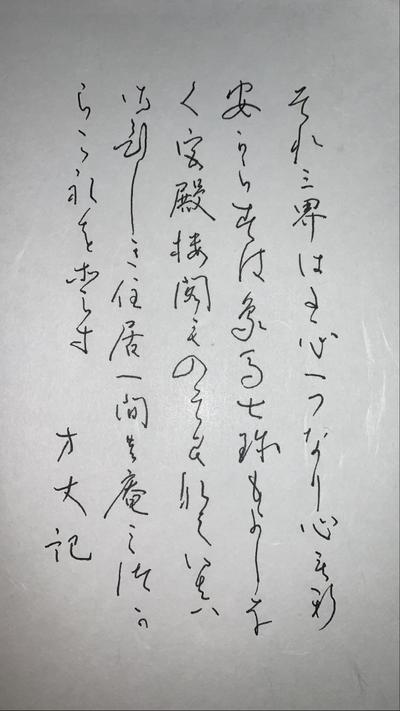 それ三界はたゝ心一つなり心もし
安からすは象馬七珍もよしな
く宮殿楼閣ものそみなしいまハ
さひしき住居一間の庵みつか
らこれを愛す
方丈記